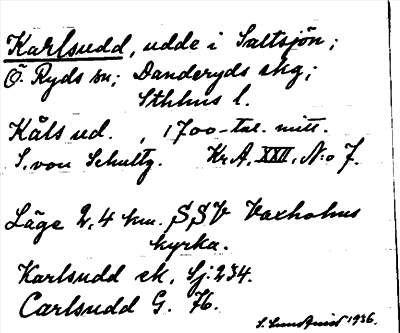 Karlsudd, udde i Saltsjön;
Ö. Ryds sn; Danderyds skg;
Sthlms l.
Kåls ud. , 1700-tal. mitt.
S. von Schultz. Kr.A. XXII. No 7.
Läge 2,4 km. SSV Vaxholms
kyrka.
Karlsudd ek. Sj: 234.
Carlsudd G. 76.
S. Lundquist 1936.